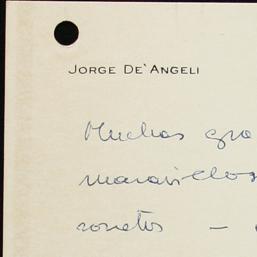 JORGE DE'ANGELI
Muchas gra
maravillos
sonetos –